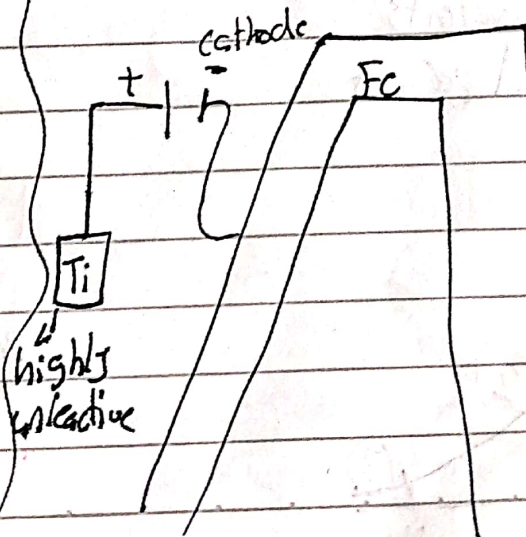 cathode
+ -
Fe
Ti
highly
unreactive